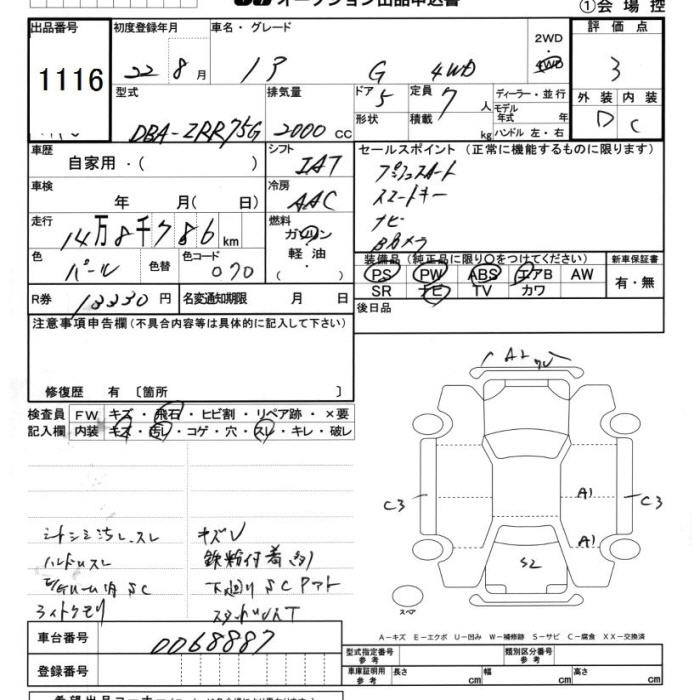 オークション出品申込書
①会場控
出品番号 1116
初度登録年月 22年 8月
車名・グレード G 4WD
2WD 4WD
評価点 3
型式 DBA-ZRR75G
排気量 2000 CC
ドア 5
形状
定員 7 人
積載 kg
ディーラー・並行
モデル年式 年
ハンドル 左・右
外装 D 内装 C
車歴 自家用・( )
シフト IAT
セールスポイント (正常に機能するものに限ります)
プッシュスタート
スマートキー
ナビ
BBカメラ
車検 年 月( 日)
冷房 AAC
走行 14万8千786 km
燃料 ガソリン 軽油 ・( )
色 パール 色替 色コード 070
装備品 (純正品に限り○をつけてください)
PS PW ABS エアB AW
SR ナビ TV カワ
新車保証書 有・無
R券 13330円 名変通知期限 月 日
後日品
注意事項申告欄(不具合内容等は具体的に記入して下さい)
修復歴 有 〔箇所 〕
検査員 FW キズ・飛石・ヒビ割・リペア跡・×要
記入欄 内装 キズ・汚レ・コゲ・穴・スレ・キレ・破レ
シートシミ汚レ、スレ
ハンドルスレ
SC
ライトクモリ
キズU
鉄粉付着(多)
下廻りSC
A1
C3 A1 C3
A1
S2
スペア
A-キズ E-エクボ U-凹み W-補修跡 S-サビ C-腐食 XX-交換済
車台番号 0068887
登録番号
型式指定番号 参考 類別区分番号 参考
車庫証明用 参考 長さ cm 幅 cm 高さ cm